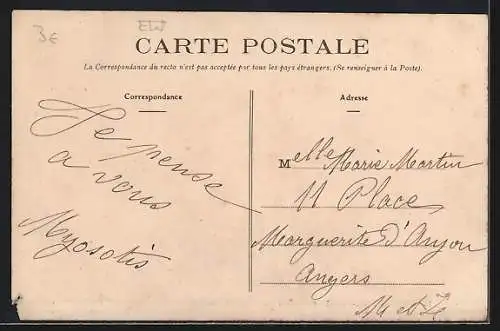 3€
EW
CARTE POSTALE
La Correspondance du recto n'est pas acceptée par tous les pays étrangers. (Se renseigner à la Poste).
Correspondance
Je pense
a vous
Myosotis
Adresse
Melle Marie Martin
11 Place
Marguerite d'Anjou
Angers
M et L